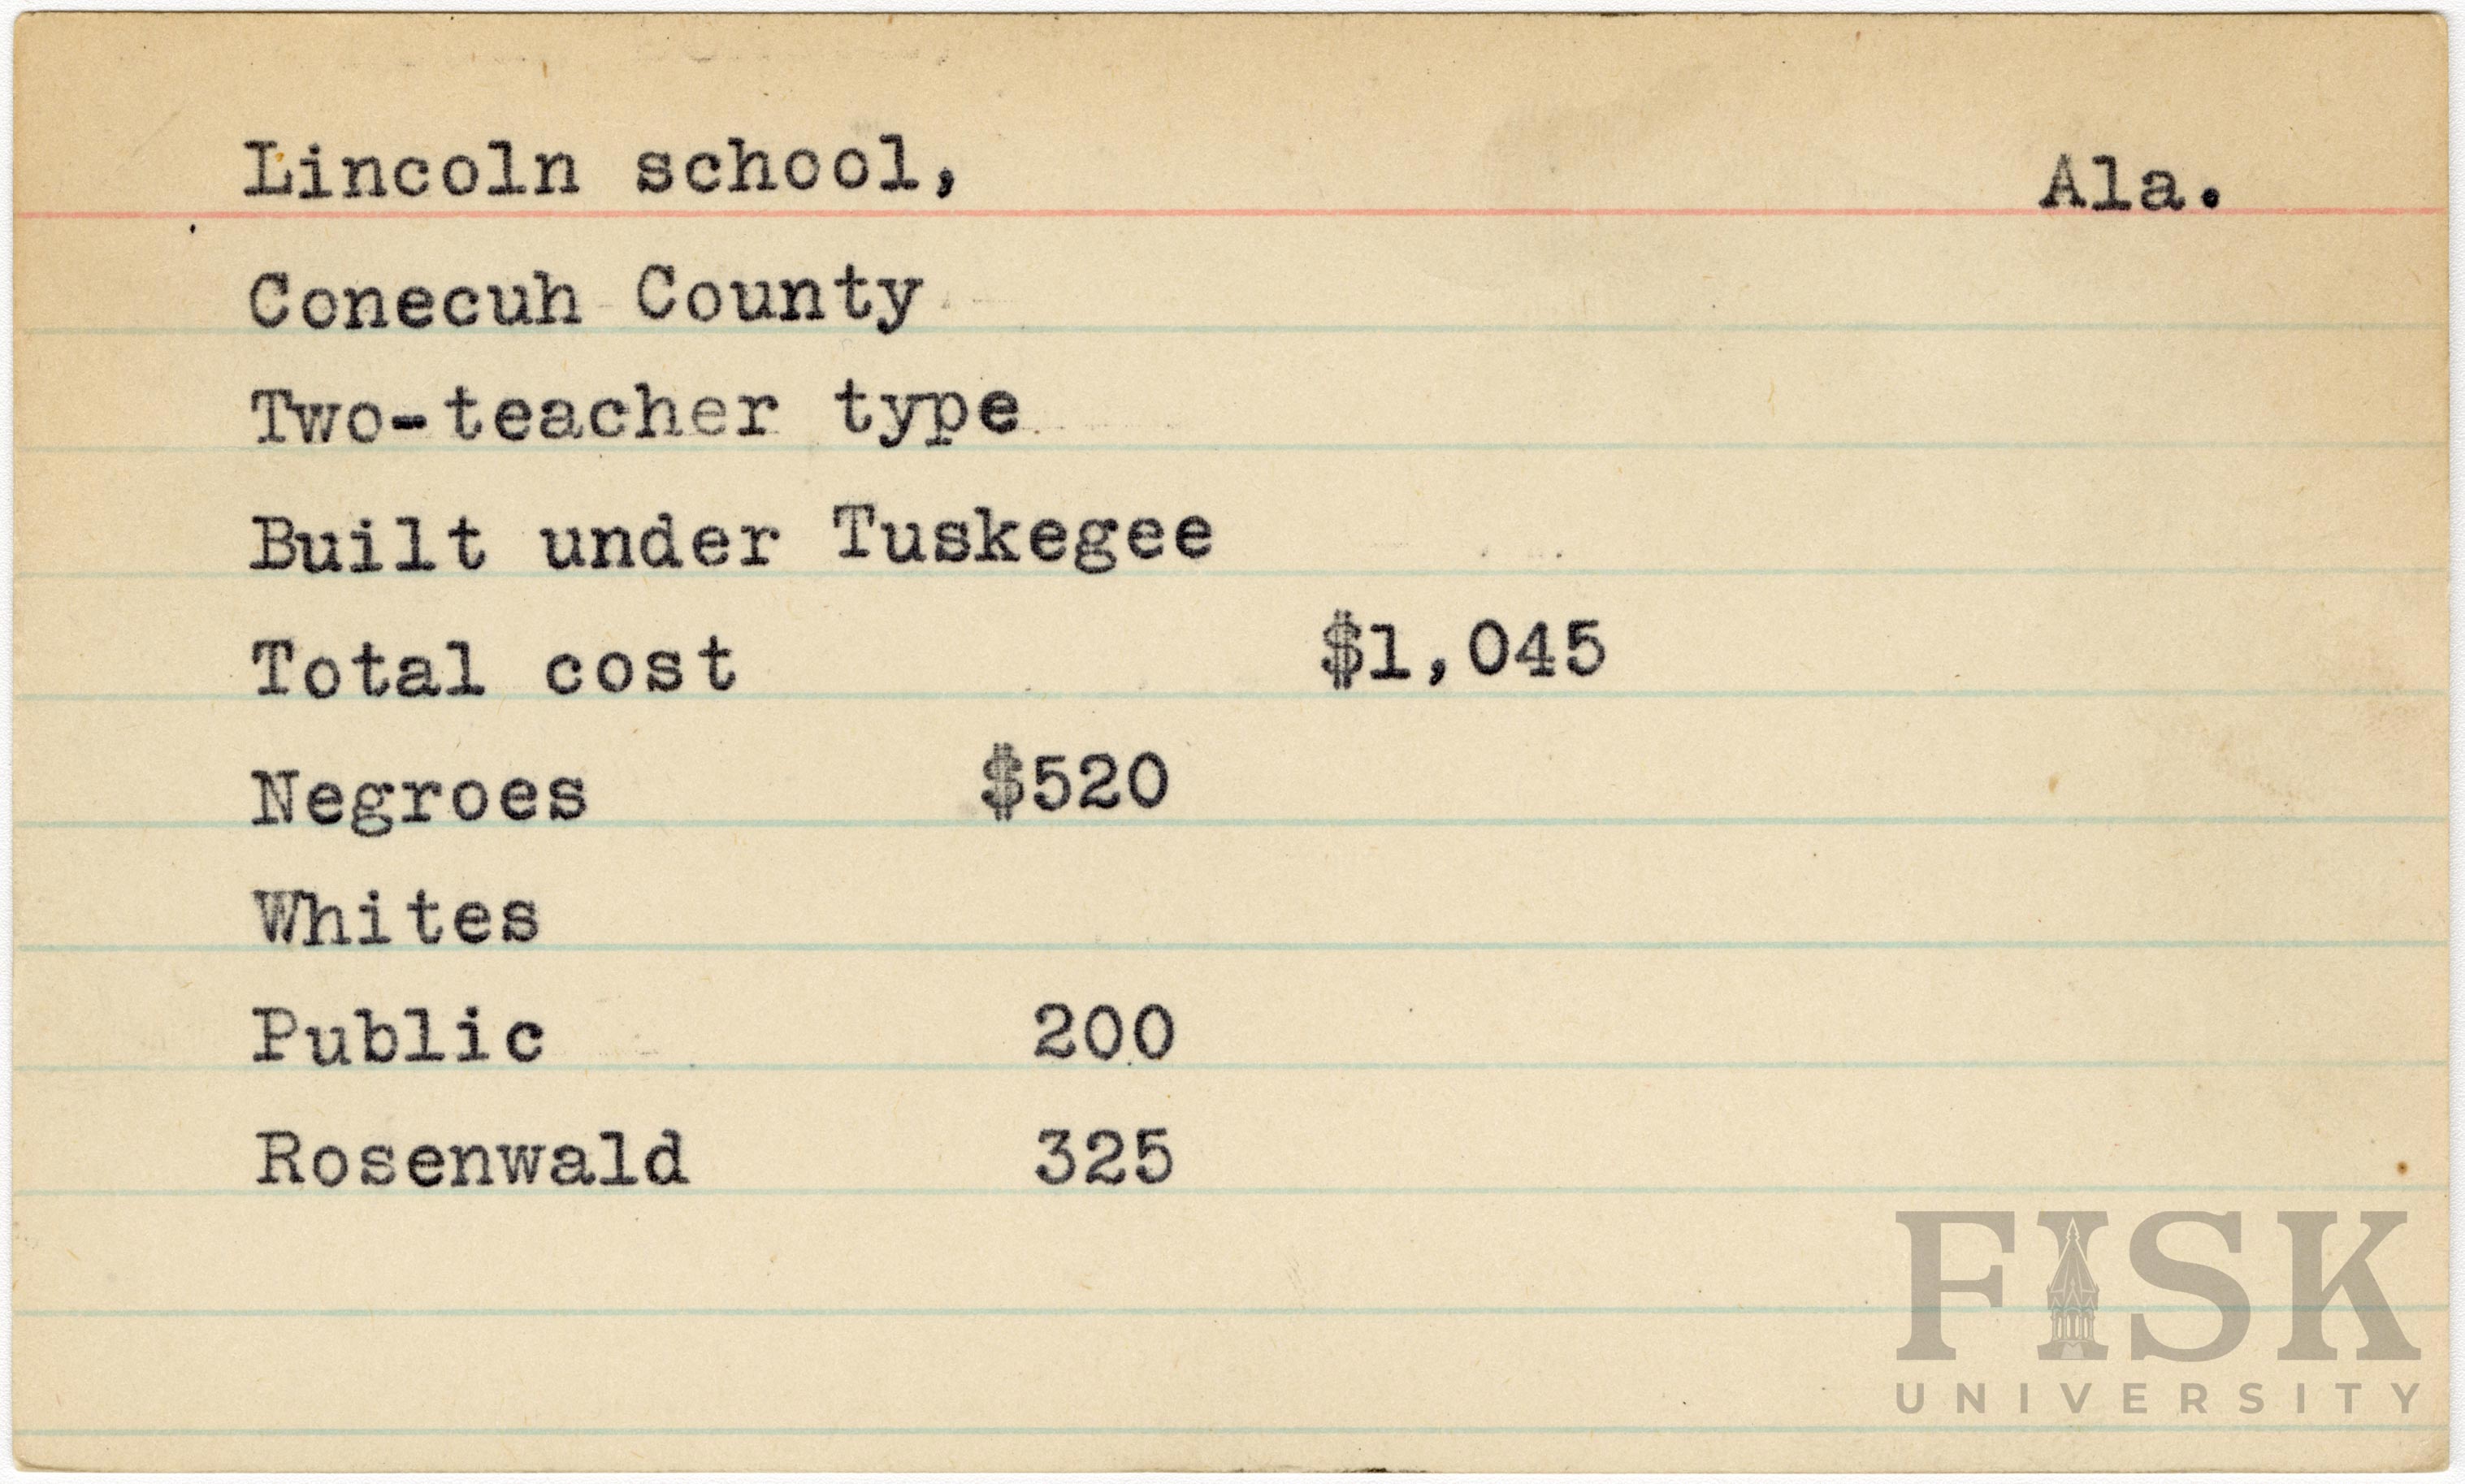 Lincoln school, Ala.
Conecuh County
Two-teacher type
Built under Tuskegee
Total cost $1,045
Negroes $520
Whites
Public 200
Rosenwald 325
FISK
UNIVERSITY